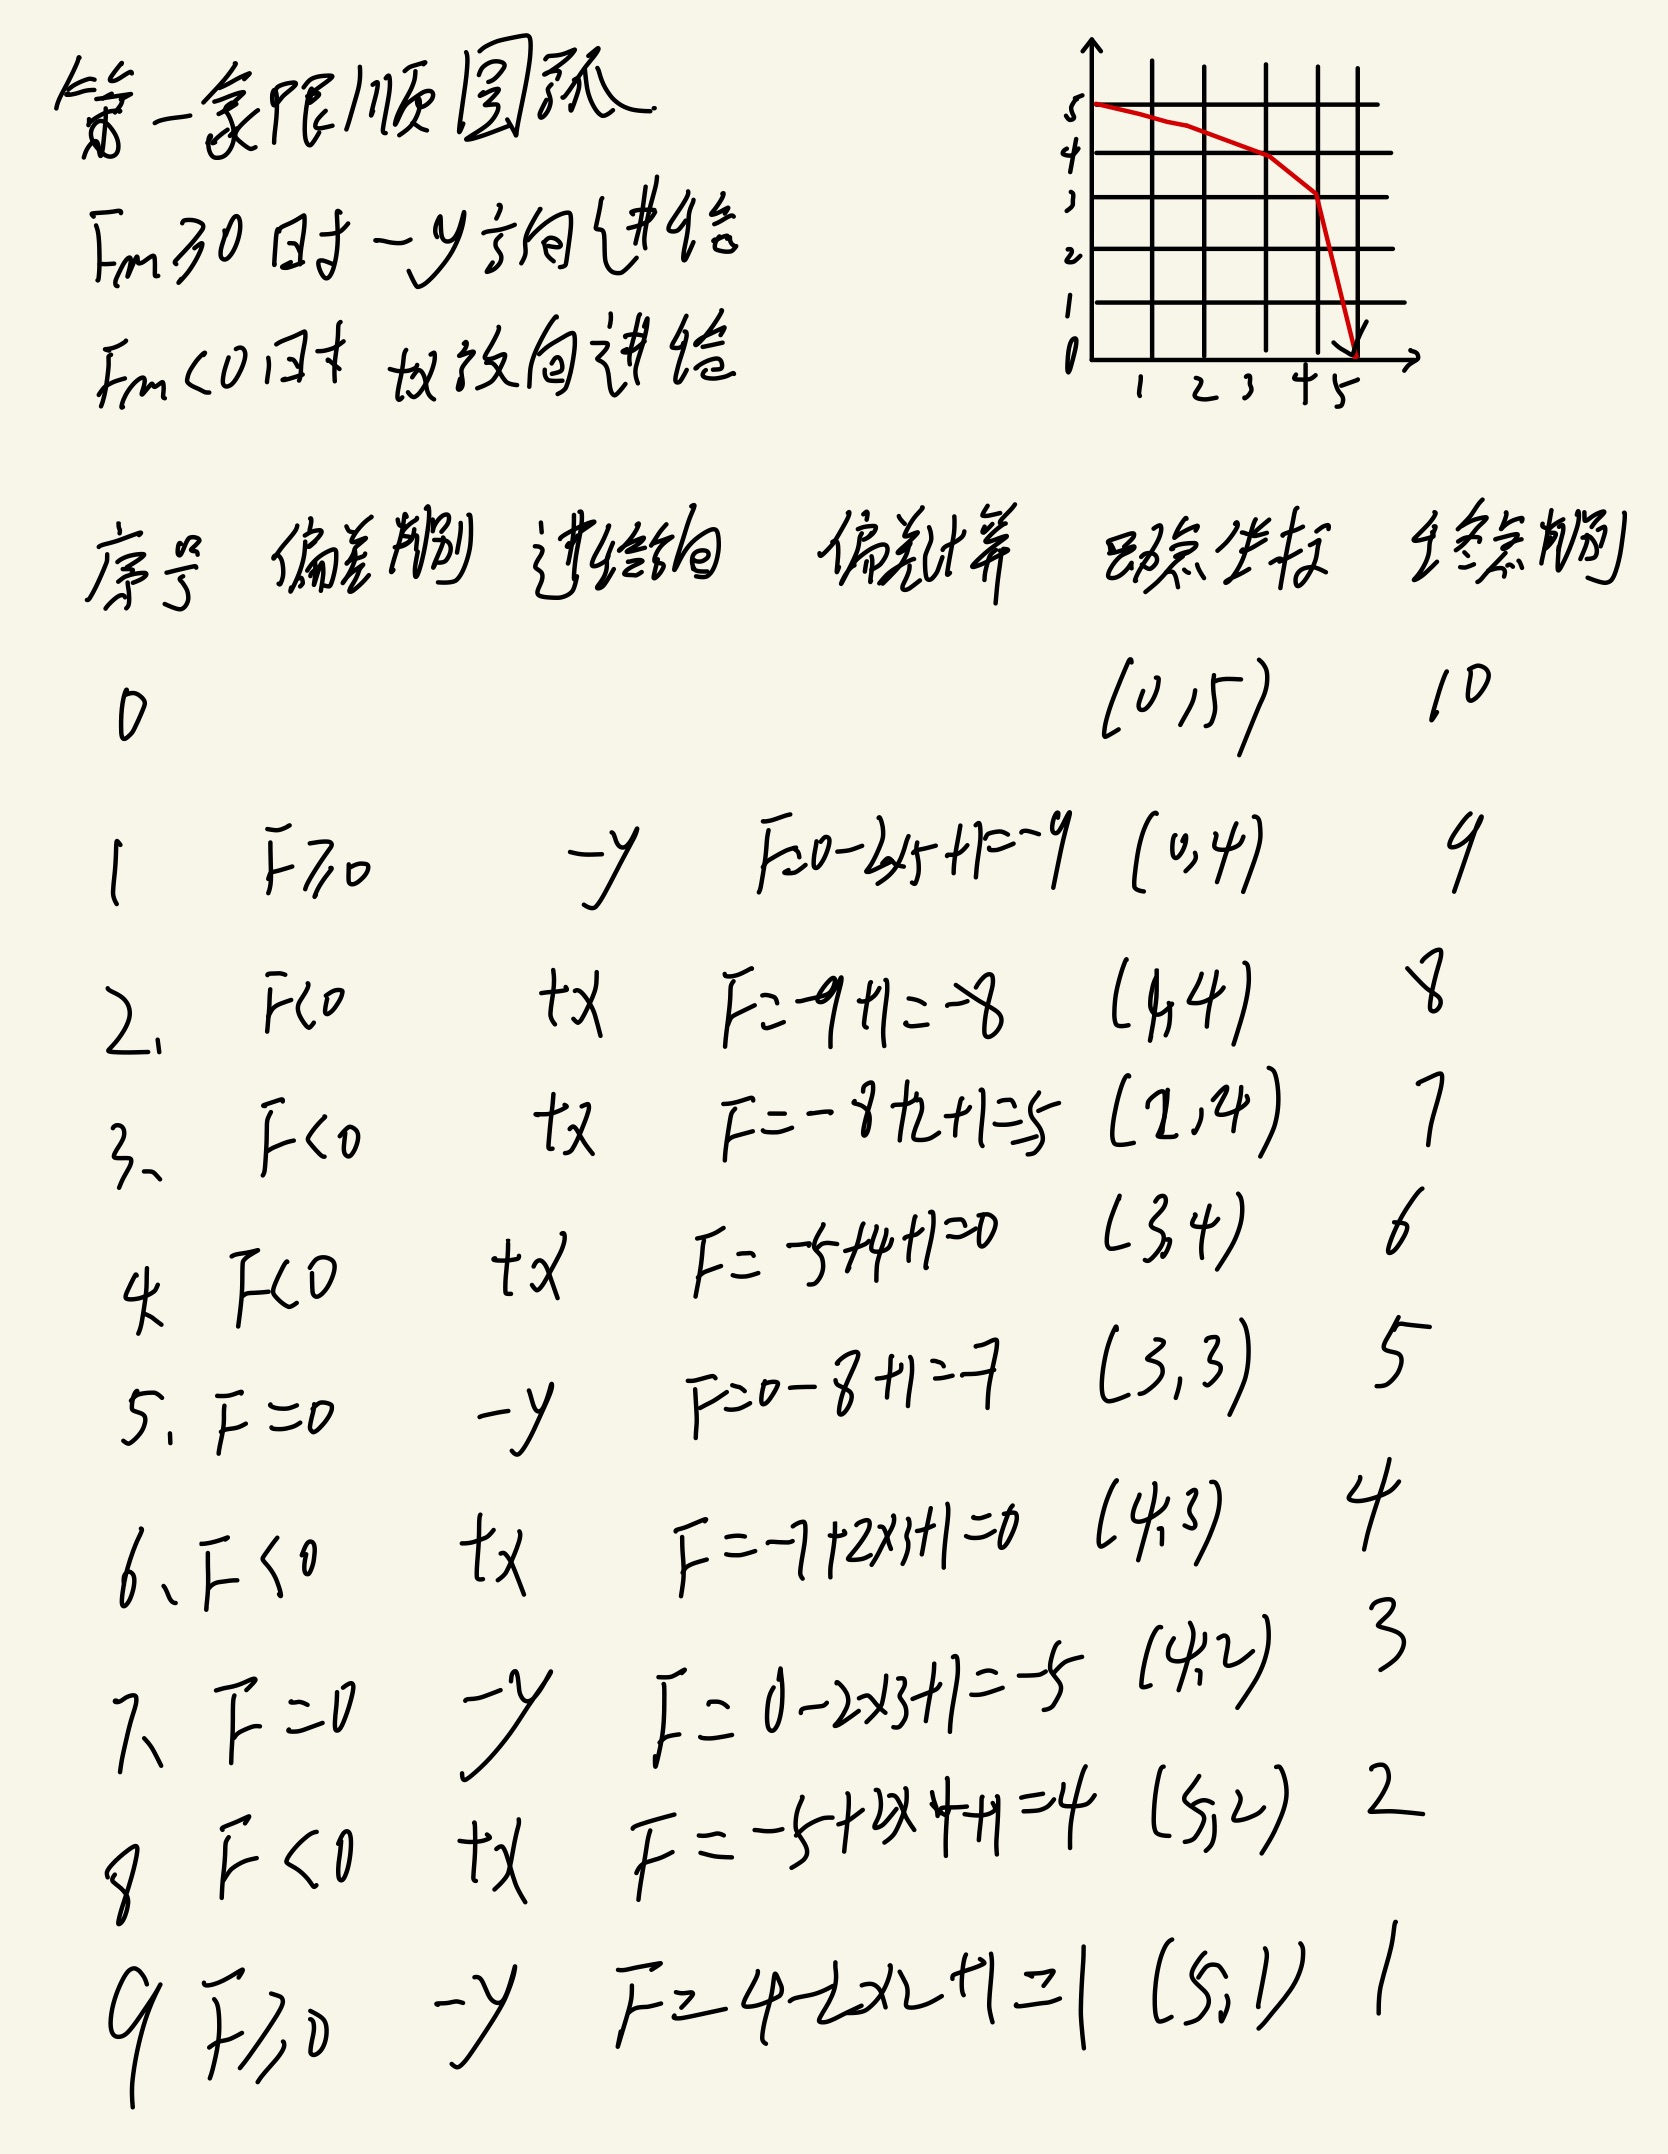 第一象限顺圆弧
Fm≥0时 -y方向进给
Fm<0时 +x方向进给
5
4
3
2
1
0
1 2 3 4 5
序号 偏差判别 进给方向 偏差计算 动点坐标 终点判别
0 (0,5) 10
1 F≥0 -y F=0-2×5+1=-9 (0,4) 9
2. F<0 +x F=-9+1=-8 (1,4) 8
3、 F<0 +x F=-8+2+1=-5 (2,4) 7
4 F<0 +x F=-5+4+1=0 (3,4) 6
5. F=0 -y F=0-8+1=-7 (3,3) 5
6、F<0 +x F=-7+2×3+1=0 (4,3) 4
7、F=0 -y F=0-2×3+1=-5 (4,2) 3
8 F<0 +x F=-5+2×4+1=4 (5,2) 2
9 F≥0 -y F=4-2×2+1=1 (5,1) 1